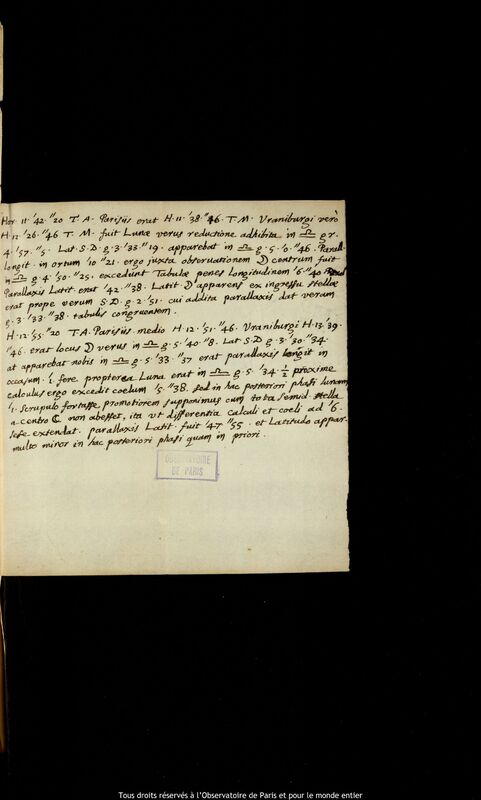 Hor. 11. '42. "20 T. A. Parisiis erat H. 11. '38. "46. T. M. Vraniburgi verò
H. 12 '26. "46 T. M. fuit Lunæ verus reductione adhibita in ♎ gr.
4. '57. "5. Lat. S. D. g. 3. '33. "19. apparebat in ♎ g. 5. '0. "46. Parall.
longit. in ortum '10 "21. ergo juxta observationem ☽ centrum fuit
in ♎ g. 4. '50. "25. excedunt Tabulæ penes longitudinem '6. "40
Parallaxis Latit. erat '42. "38. Latit. ☽ apparens ex ingressu stellæ
erat prope verum S. D. g. 2. '51. cui addita parallaxis dat veram
g. 3. '33. "38. tabulis congruentem.
H. 12. '55. "20 T.A. Parisiis. medio H. 12. '51. "46. Vraniburgi H. 13. '39.
"46. erat locus ☽ verus in ♎ g. 5. '40 "8. Lat. S. D g. 3. '30. "34.
at apparebat nobis in ♎ g. 5. '33. "37 erat parallaxis longit in
occasum. '1. fere. propterea Luna erat in ♎ g. 5. '34. ½ proxime
calculus ergo excedit coelum '5. "38. sed in hac posteriori phasi lunam
'1. scrupulo fortasse, promotiorem supponimus cum tota semid. stella
a centro ☾ non abesset, ita vt differentia calculi et coeli ad '6.
sese extendat. parallaxis Latit. fuit '47 "55. et Latitudo appar.
multo minor in hac posteriori phasi quam in priori.
OBSERVATOIRE
DE PARIS
Tous droits réservés à l'Observatoire de Paris et pour le monde entier